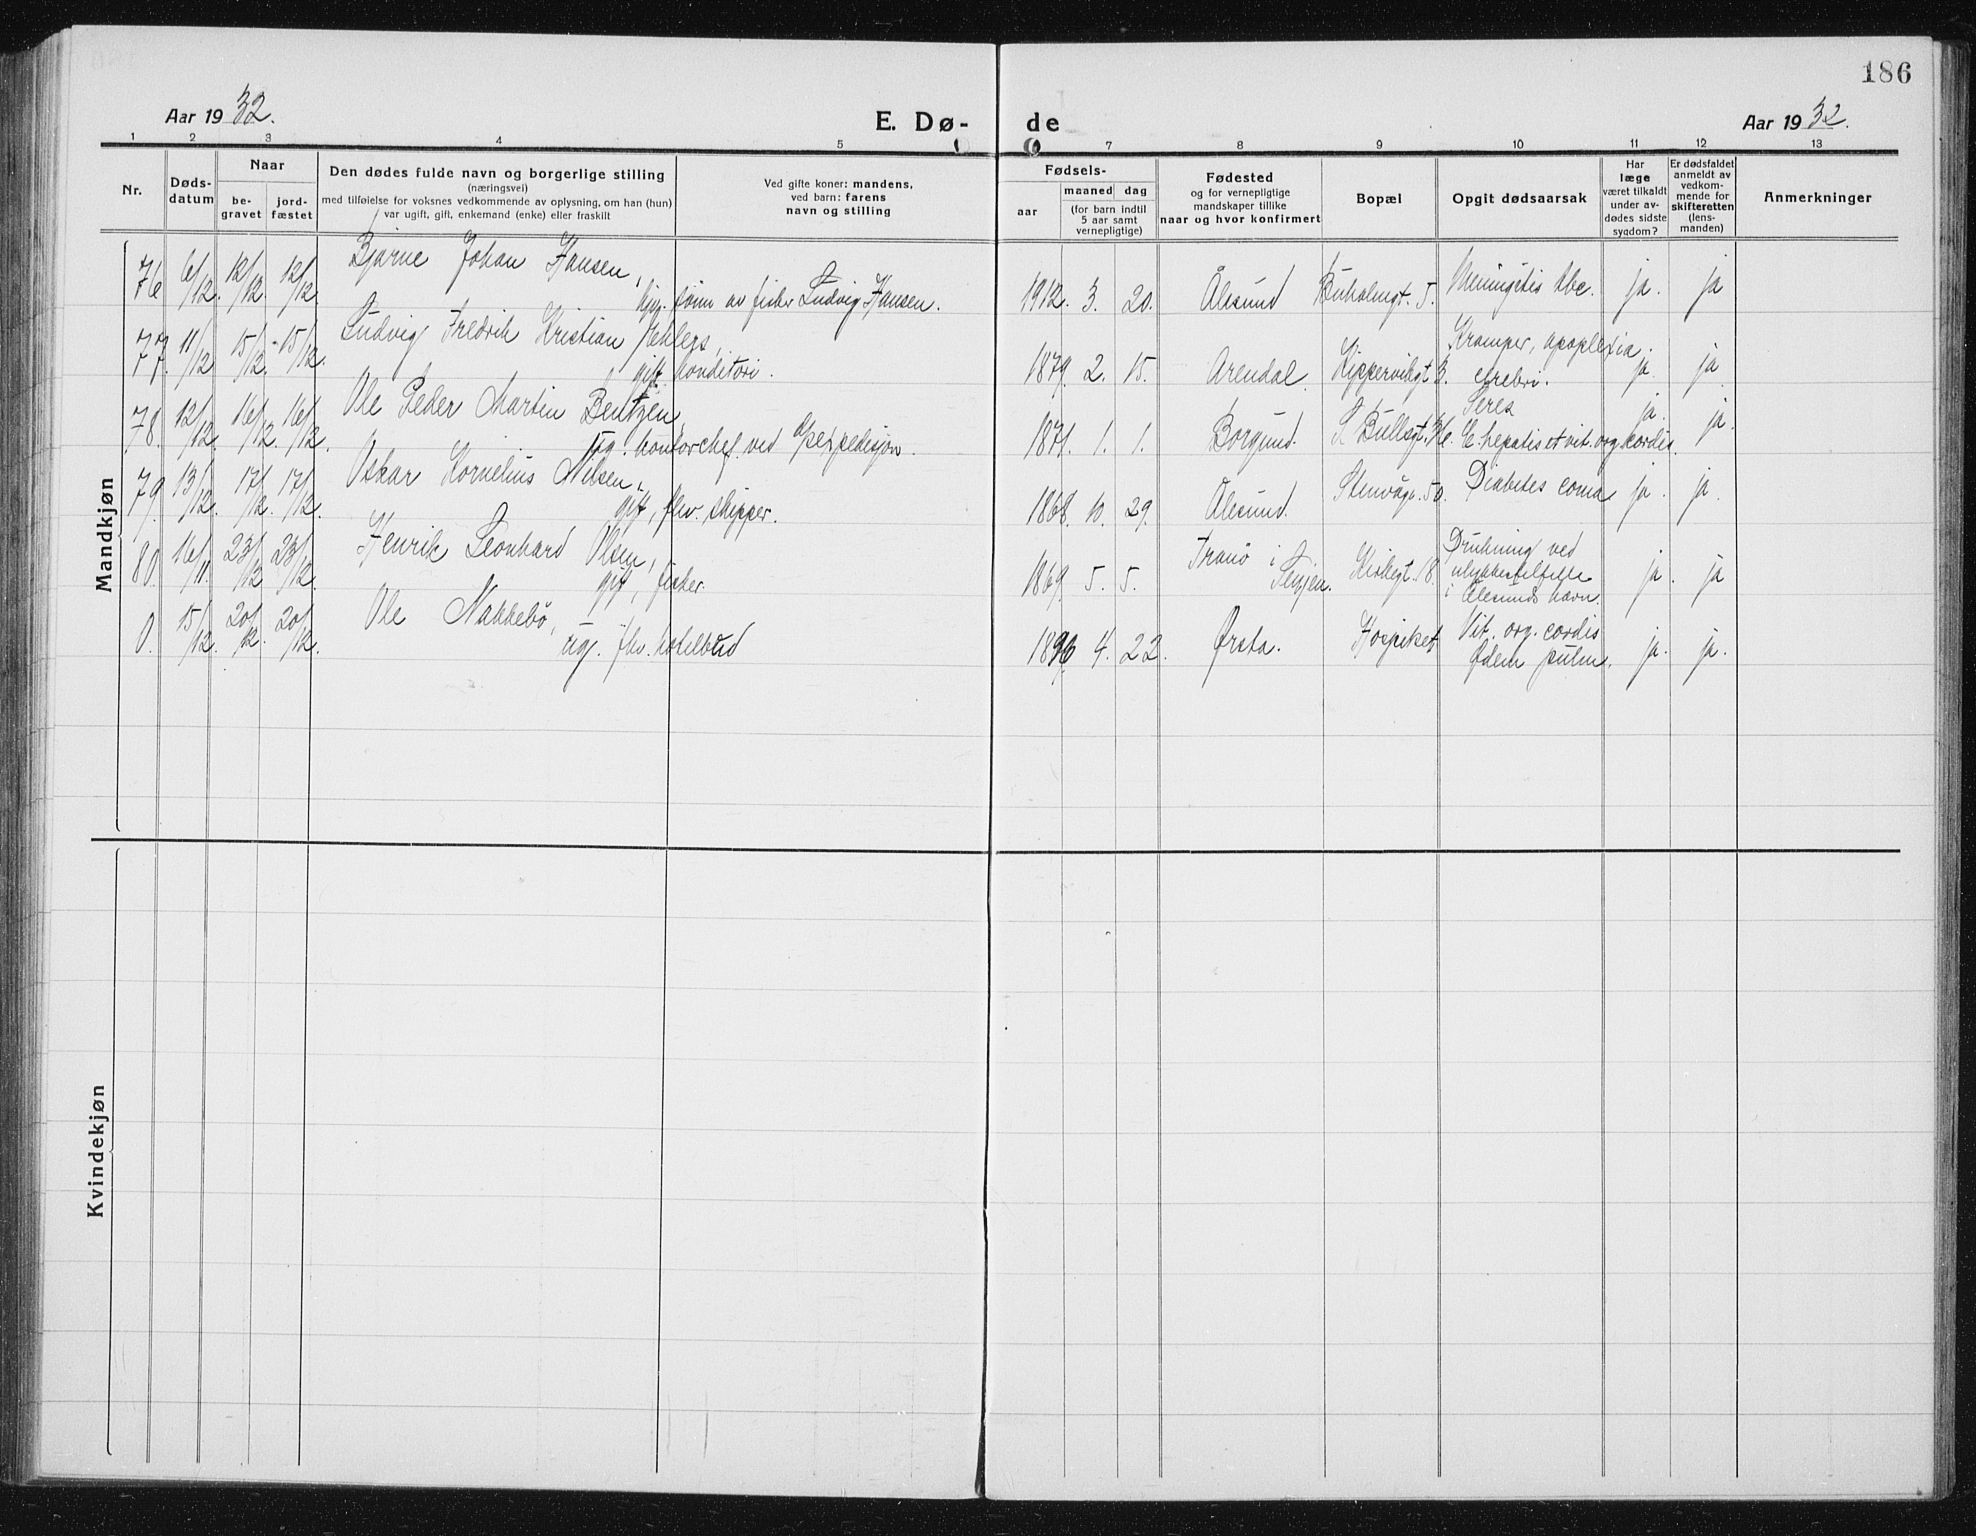 186
Aar 1932.
E. Dø-
de
Aar 1932.
1 2 3 4 5 6 7 8 9 10 11 12 13
Nr.
Døds-
datum
Naar
be-
gravet
jord-
fæstet
Den dødes fulde navn og borgerlige stilling
(næringsvei)
med tilføielse for voksnes vedkommende av oplysning, om han (hun)
var ugift, gift, enkemand (enke) eller fraskilt
Ved gifte koner: mandens,
ved barn: farens
navn og stilling
Fødsels-
aar
maaned dag
(for barn indtil
5 aar samt
vernepligtige)
Fødested
og for vernepligtige
mandskaper tillike
naar og hvor konfirmert
Bopæl
Opgit dødsaarsak
Har
læge
været tilkaldt
under av-
dødes sidste
sygdom?
Er dødsfaldet
anmeldt av
vedkom-
mende for
skifteretten
(lens-
manden)
Anmerkninger
Mandkjøn
76 6/12. 12/12 12/12 Bjarne Johan Hansen,
sønn av fisker Ludvig Hansen. 1912. 3. 20. Ålesund Buholmgt. 5. Meningitis tbc. ja. ja
77. 11/12 15/12. 15/12. Ludvig Fredrik Kristian
gift, konditori. 1879. 2. 15. Arendal. Kippervikgt 3. Kramper, apoplexia
cerebri. ja. ja
78. 12/12. 16/12 16/12. Ole Peder Martin Bentzen,
ug. kontorchef ved 1871. 1. 1. Borgund. Bullsgt. hepatis et vit. org. cordis. ja. ja.
79. 13/12. 17/12. 17/12. Oskar Kornelius Nilsen,
gift, fhv. skipper. 1868. 10. 29. Ålesund. Stenvågn. 50. Diabetes coma ja. ja.
80. 16/11. 23/12 23/12. Henrik Leonhard Olsen,
gift, fisker. 1869. 5. 5. Tranö i
Senjen. Kirkegt. 18. Drukning ved
ulykkestilfelle
i Ålesunds havn. ja. ja
0. 15/12. 20/12. 20/12. Ole Nakkebø,
ug. fhv. hotelbud 1896 4. 22. Ørsta. Hospitset Vit. org. cordis
Ødem pulm. ja. ja.
Kvindekjøn